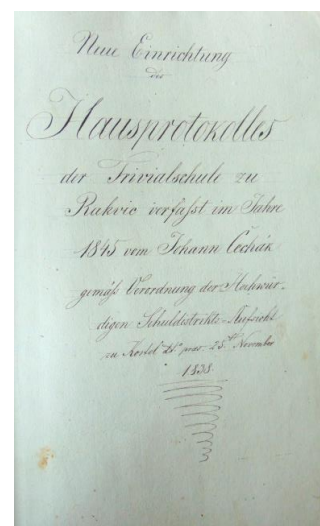 Neue Einrichtung
des
Hausprotokolles
der Trivialschule zu
Rakvic verfaßt im Jahre
1845 vom Johann Čechák
gemäß Verordnung der Hochwür-
digen Schuldistrikts-Aufsicht
zu Kostel November
1838.